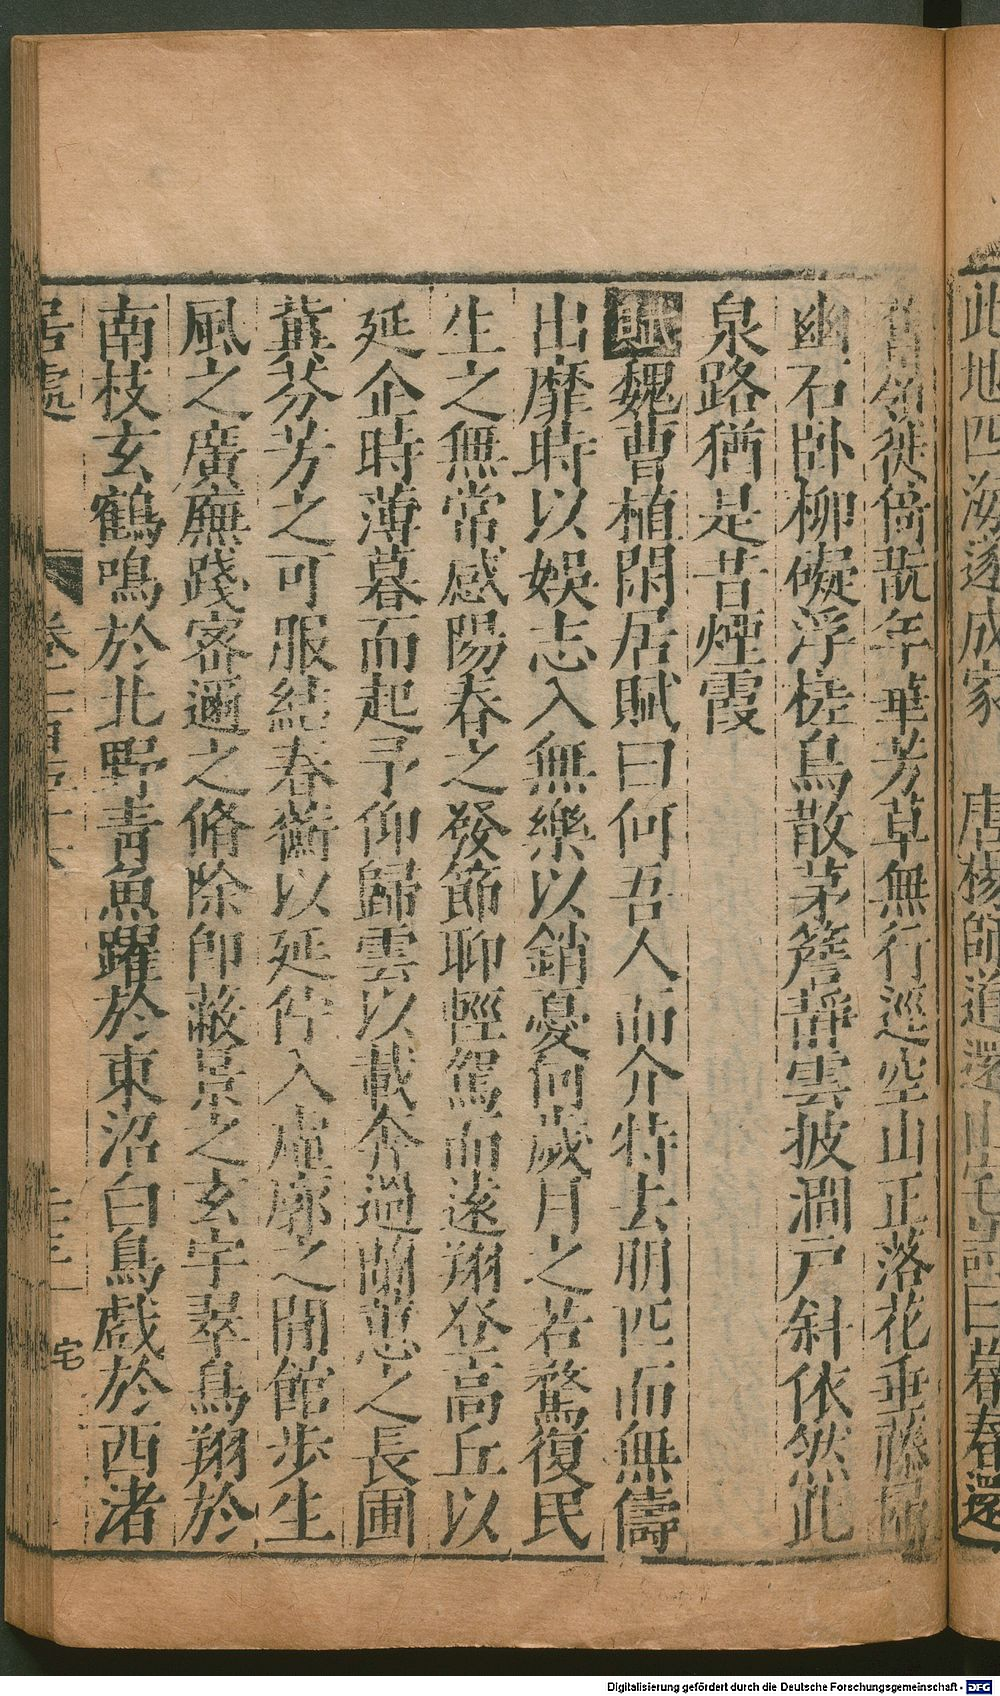 此地四海遂成家 唐楊師道還山宅詩曰暮春還
舊嶺徙倚翫年華芳草無行逕空山正落花垂藤掃
幽石臥柳礙浮槎鳥散茅簷靜雲披澗戶斜依然此
泉路猶是昔煙霞
賦魏曹植閑居賦曰何吾人而介特去朋匹而無儔
出靡時以娛志入無樂以銷憂何歲月之若騖復民
生之無常感陽春之發節聊輕駕而遠翔登高丘以
延企時薄暮而起予仰歸雲以載奔過蘭蕙之長圃
冀芬芳之可服結春蘅以延佇入虛廓之閒館步生
風之廣廡踐密邇之脩除即蔽景之玄宇翠鳥翔於
南枝玄鶴鳴於北野青魚躍於東沼白鳥戲於西渚
居處 卷一百 宅
Digitalisierung gefördert durch die Deutsche Forschungsgemeinschaft - DFG